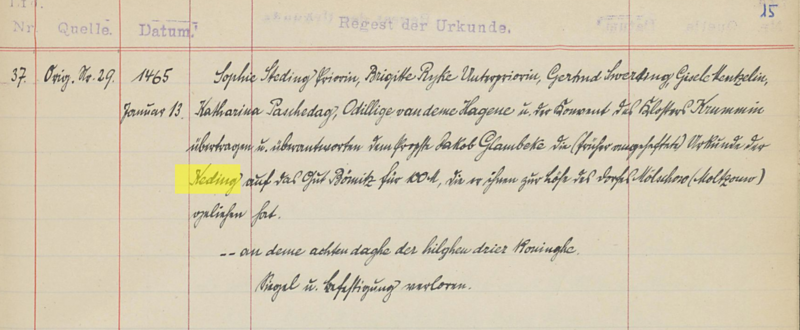 15
Lfd.
Nr. Quelle. Datum. Regest der Urkunde.
37. Orig. Nr. 29. 1465 Sophie Steding Priorin, Brigitte Ryke Unterpriorin, Gertrud Swerting, Gisele Wentzelin,
Januar 13. Katharina Paschedag, Odillige van deme Hagene u. der Konvent des Klosters Krummin
übertragen u. überantworten dem Propste Jakob Glambeke die (früher angeheftete) Urkunde der
Steding auf das Gut Bömitz für 100 M, die er ihnen zur Löse des Dorfes Mölschow (Moltzowe)
geliehen hat.
-- an deme achten daghe der hilghen drier Koninghe.
Siegel u. Befestigung verloren.